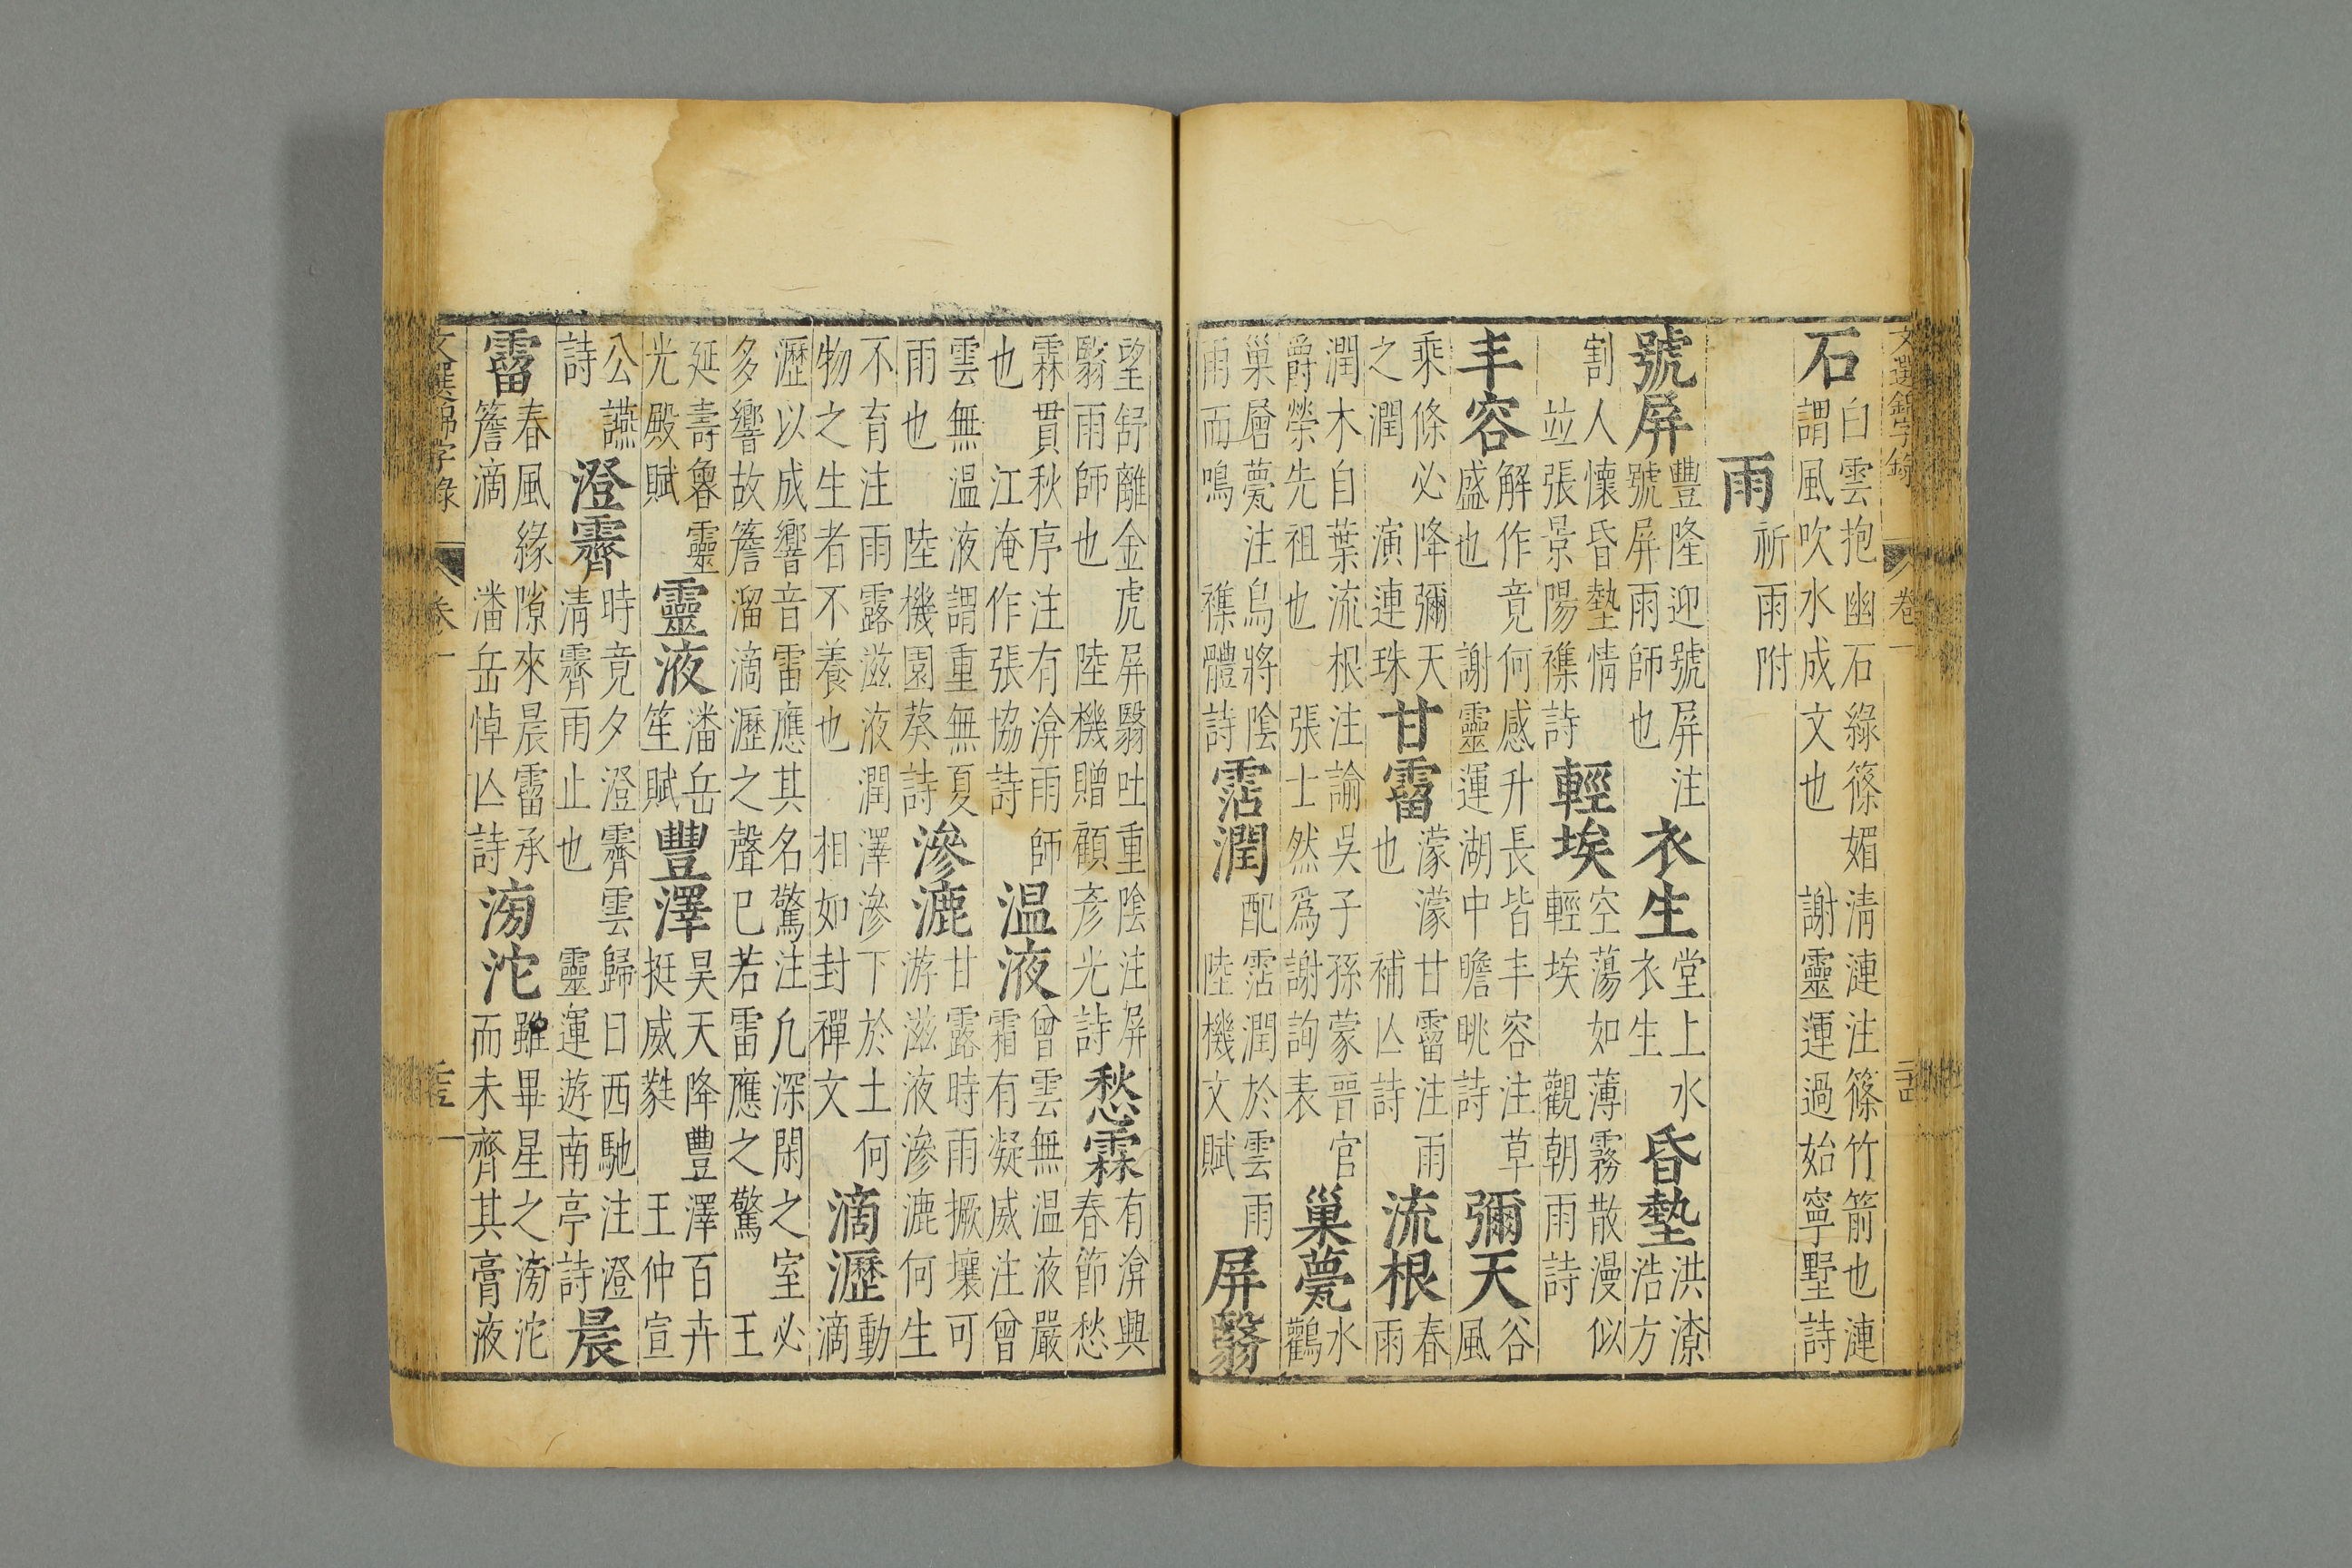 文選錦字錄 卷一 二十四
石白雲抱幽石綠篠媚淸漣注篠竹箭也漣謂風吹水成文也 謝靈運過始寧墅詩
雨 祈雨附
號屏豐隆迎號屏注號屏雨師也衣生堂上水衣生昏墊洪潦浩方
割人懷昏墊情竝張景陽襍詩輕埃空蕩如薄霧散漫似輕埃 觀朝雨詩
丰容解作竟何感升長皆丰容注草盛也 謝靈運湖中瞻眺詩彌天谷風
乘條必降彌天之潤 演連珠甘霤濛濛甘霤注雨也 補亾詩流根春雨
潤木自葉流根注諭吳子孫蒙晉官爵榮先祖也 張士然爲謝詢表巢甍水鸛
巢層甍注烏將隂雨而鳴 襍體詩霑潤配霑潤於雲雨陸機文賦屏翳
望舒離金虎屏翳吐重隂注屏翳雨師也 陸機贈顧彥光詩愁霖有渰興春節愁
霖貫秋序注有渰雨師也 江淹作張協詩温液曾雲無温液嚴霜有凝威注曾
雲無温液謂重無夏雨也 陸機園葵詩滲漉甘露時雨撅壤可游滋液滲漉何生
不育注雨露滋液潤澤滲下於土何物之生者不養也 相如封禪文滴瀝動滴
瀝以成響音雷應其名驚注凢深閑之室必多響故簷溜滴瀝之聲已若雷應之驚 王
延壽魯靈光殿賦靈液潘岳笙賦豐澤昊天降豐澤百卉挺威蕤 王仲宣
公讌詩澄霽時竟夕澄霽雲歸日西馳注澄淸霽雨止也 靈運遊南亭詩晨
霤春風緣隙來晨霤承簷滴 潘岳悼亾詩滂沱雖畢星之滂沱而未齊其膏液
文選錦字錄 卷一 二十五